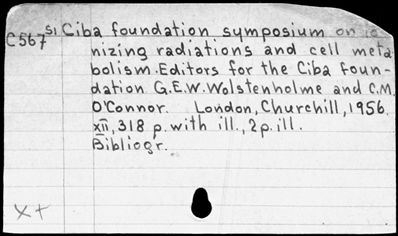 SI Ciba foundation symposium on io
C567 nizing radiations and cell meta
bolism. Editors for the Ciba Foun-
dation G.E.W. Wolstenholme and C.M.
O'Connor. London, Churchill, 1956.
xii, 318 p. with ill., 2 p. ill.
Bibliogr.
X+